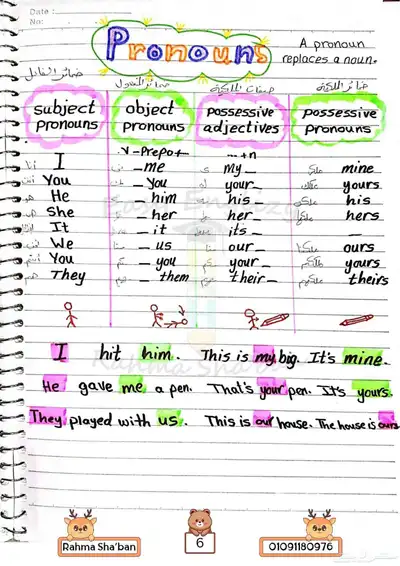 Date :
No:
Pronouns
A pronoun
replaces a noun.
ضمائر الفاعل
ضمائر المفعول
صفات الملكية
ضمائر الملكية
subject pronouns
object pronouns
possessive adjectives
possessive pronouns
v - Prepo +
_ + n
I _me my _ mine
You _you your _ yours
He _him his _ his
She _her her _ hers
It _it its _ _
We _us our _ ours
You _you your _ yours
They _them their _ theirs
I hit him. This is my big. It's mine.
He gave me a pen. That's your pen. It's yours.
They played with us. This is our house. The house is ours
Rahma Sha'ban
Rahma Sha'ban
6
01091180976